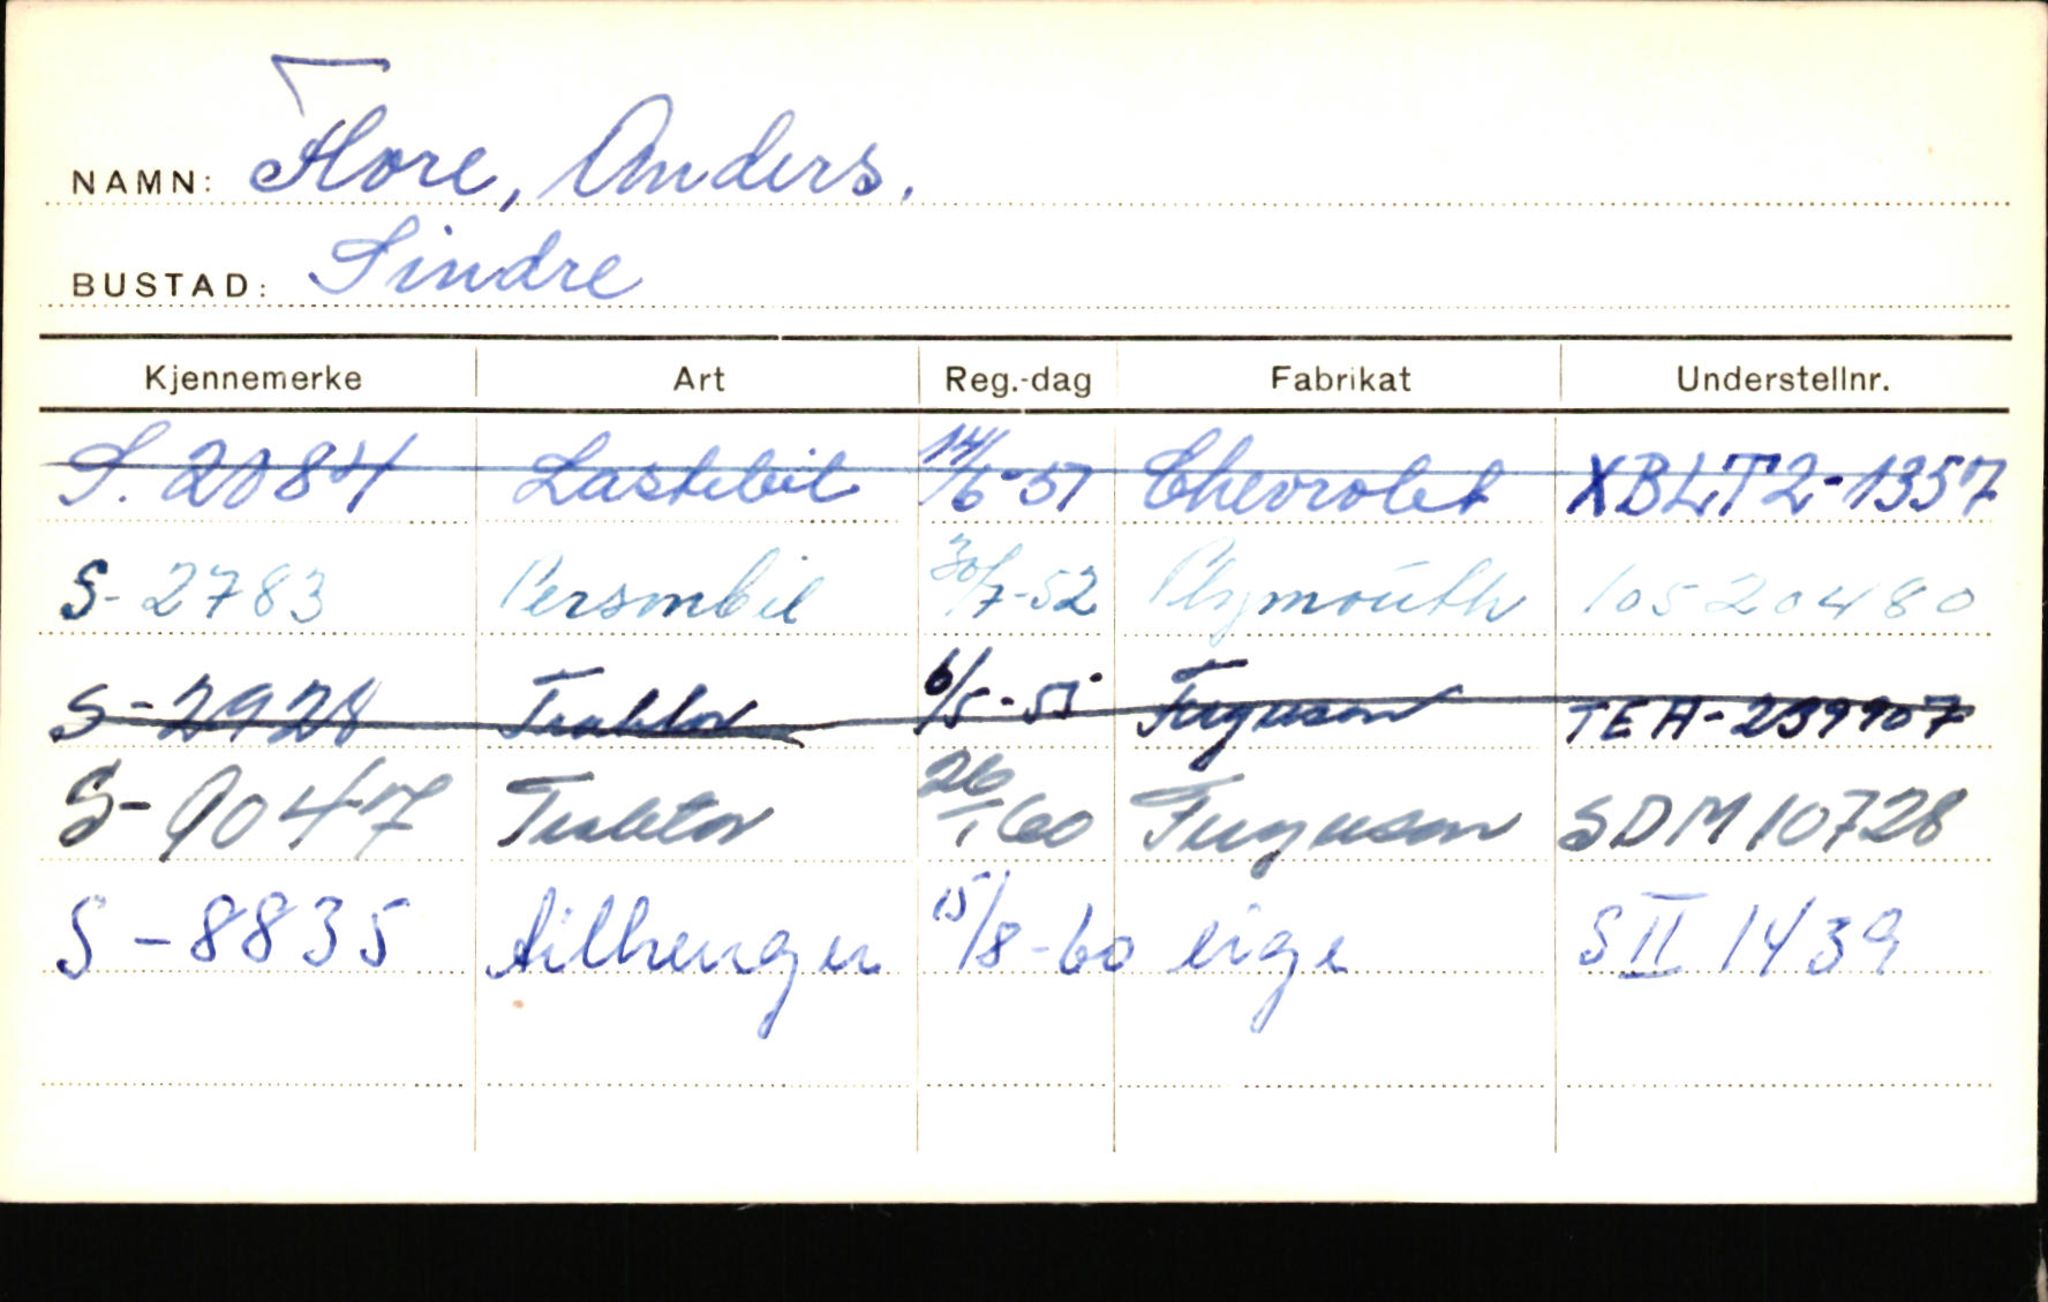 NAMN: Flore, Anders.
BUSTAD: Sindre
Kjennemerke Art Reg.-dag Fabrikat Understellnr.
S. 2084 Lastebil 14/6-51 Chevrolet XBLT2-1357
S-2783 Personbil 30/7-52 Plymouth 10520480
S-2928 Traktor 6/5-55 Ferguson TEA-239907
S-9047 Traktor 26/1 60 Ferguson SDM10728
S-8835 tilhenger 15/8-60 eige SII 1439